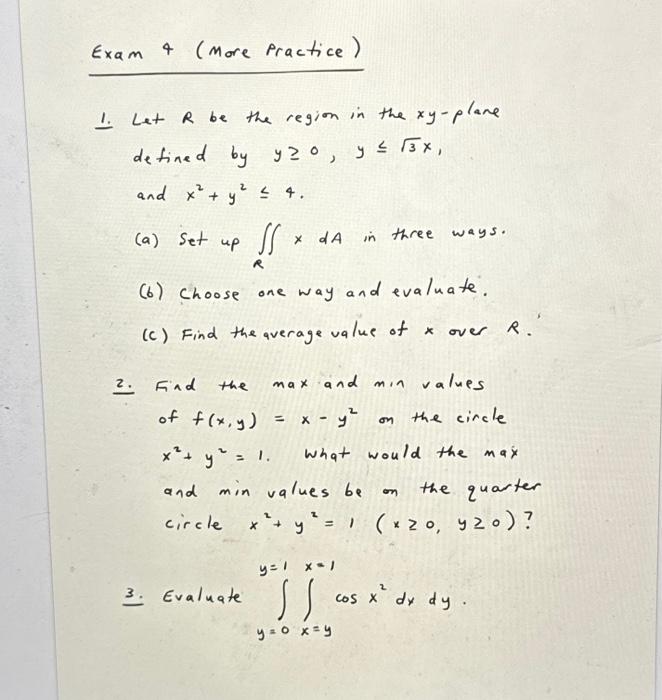 Exam 4 (More Practice)
1. Let R be the region in the xy-plane
defined by y ≥ 0, y ≤ √3 x,
and x² + y² ≤ 4.
(a) Set up ∬_R x dA in three ways.
(b) Choose one way and evaluate.
(c) Find the average value of x over R.
2. Find the max and min values
of f(x,y) = x - y² on the circle
x² + y² = 1. What would the max
and min values be on the quarter
circle x² + y² = 1 (x ≥ 0, y ≥ 0)?
3. Evaluate ∫_{y=0}^{y=1} ∫_{x=y}^{x=1} cos x² dx dy.